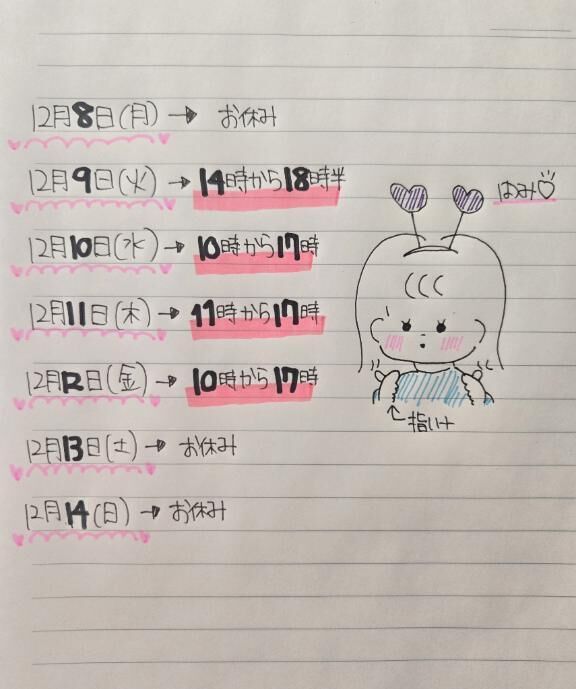 12月8日(月)→ お休み
12月9日(火)→ 14時から18時半
はみ♡
12月10日(水)→ 10時から17時
12月11日(木)→ 11時から17時
12月12日(金)→ 10時から17時
指ハート
12月13日(土)→ お休み
12月14(日)→ お休み